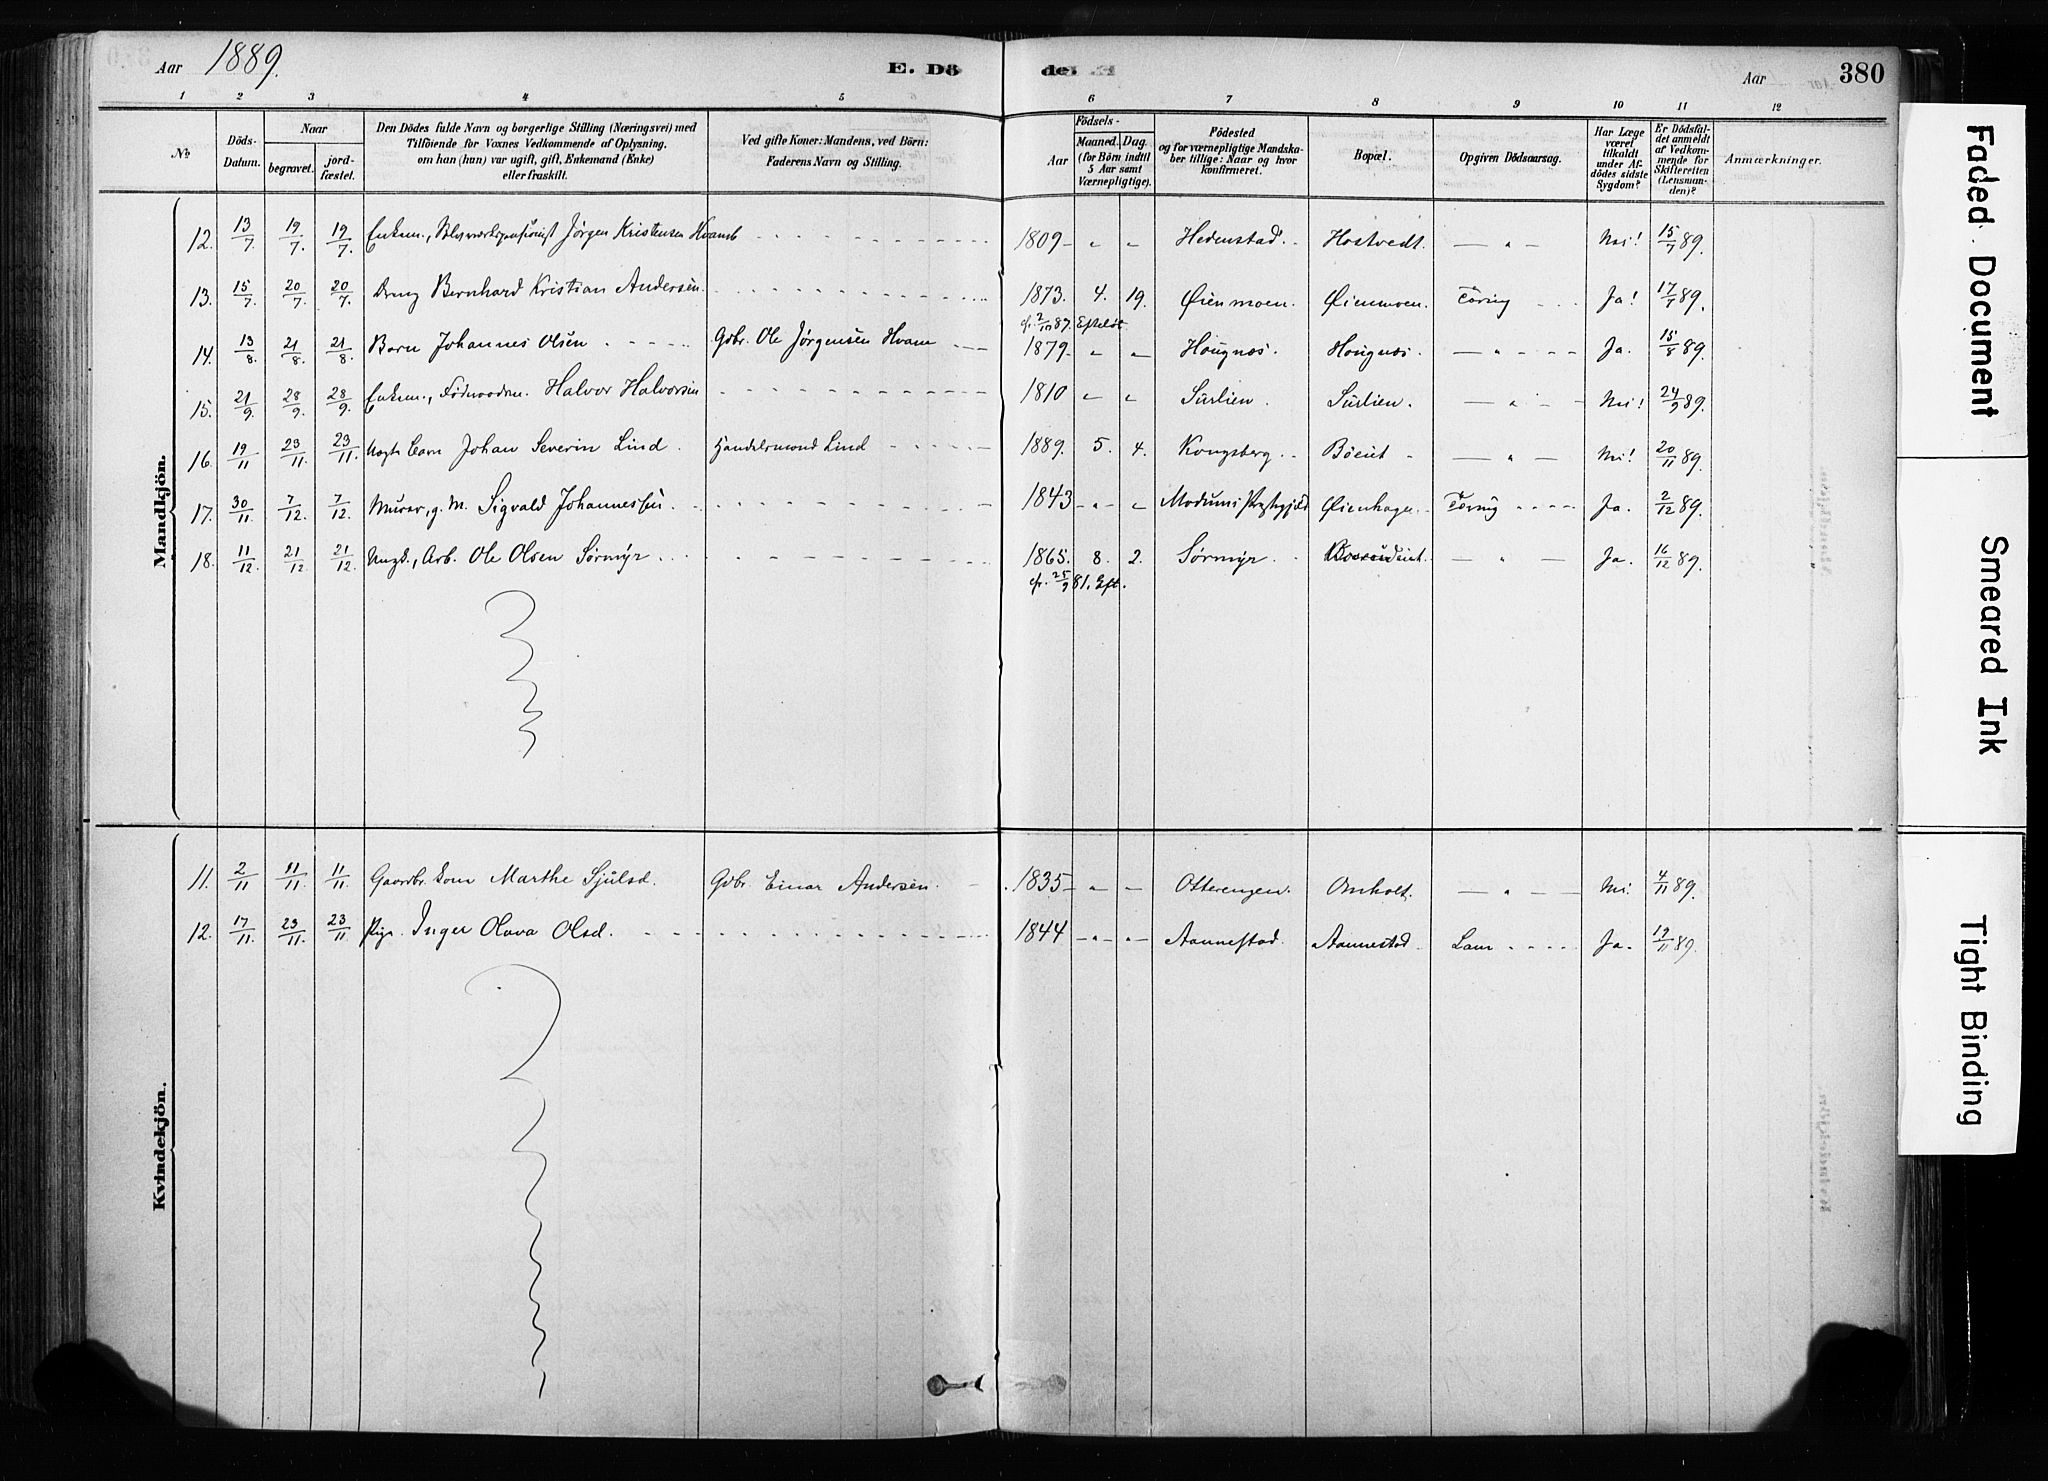 Aar 1889. E. Dö de: Aar 380
1 2 3 4 5 6 7 8 9 10 11 12
No Döds-Datum. Naar begravet. jord-fæstet. Den Dödes fulde Navn og borgerlige Stilling (Næringsvei) med Tilföiende for Voxnes Vedkommende af Oplysning, om han (hun) var ugift, gift, Enkemand (Enke) eller fraskilt. Ved gifte Koner: Mandens, ved Börn: Faderens Navn og Stilling. Födsels- Aar Maaned. Dag. (for Börn indtil 5 Aar samt Værnepligtige). Födested og for værnepligtige Mandska-ber tillige: Naar og hvor konfirmeret. Bopæl. Opgiven Dödsaarsag. Har Læge været tilkaldt under Af-dödes sidste Sygdom? Er Dödsfal-det anmeldt af Vedkom-mende for Skifteretten (Lensman-den)? Anmærkninger.
Mandkjön.
12. 13/7. 19/7. 19/7. Enkem., Jørgen Kristensen Hvamb 1809 - „ „ Hedenstad. Hostvedt. — „ — Nei! 15/7 89.
13. 15/7. 20/7. 20/7. Dreng Bernhard Kristian Andersen. 1873. 4. 19. Øienmoen. Øienmoen. Tæring Ja! 17/7 89.
cfr. 2/10 87. Efteløt
14. 13/8. 21/8. 21/8. Barn Johannes Olsen Gdbr. Ole Jørgensen Hvam 1879 - „ „ Hougnæs. Hougnæs. — „ — Ja. 15/8 89.
15. 21/9. 28/9. 28/9. Enkem., Halvor Halvorsen 1810 „ „ Surlien. Surlien. — „ — Nei! 24/9 89.
16. 19/11 23/11. 23/11. Barn Johan Severin Lind. Handelsmand Lind 1889. 5. 4. Kongsberg. — „ — Nei! 20/11 89.
17. 30/11. 7/12. 7/12. Murer, g. M. Sigvald Johannessen. 1843 - „ - „ Modums Præstegjæld Øienhagen. Tæring Ja. 2/12 89.
18. 11/12. 21/12. 21/12. Ungk., Arb. Ole Olsen Sørmyr. 1865. 8. 2. Sørmyr. — „ — Ja. 16/12 89.
cfr. 25/9 81. Eft.
Kvindekjön.
11. 2/11 11/11. 11/11. Gaardbr. kone Marthe Sjulsd. Gdbr. Einar Andersen. 1835 - „ - „ Otterengen. Omholt. — „ — Nei. 4/11 89.
12. 17/11. 23/11. 23/11 Pige. Inger Olava Olsd. 1844 - „ - „ Aannestad. Aannestad. Lam Ja. 19/11 89.
Faded Document
Smeared Ink
Tight Binding